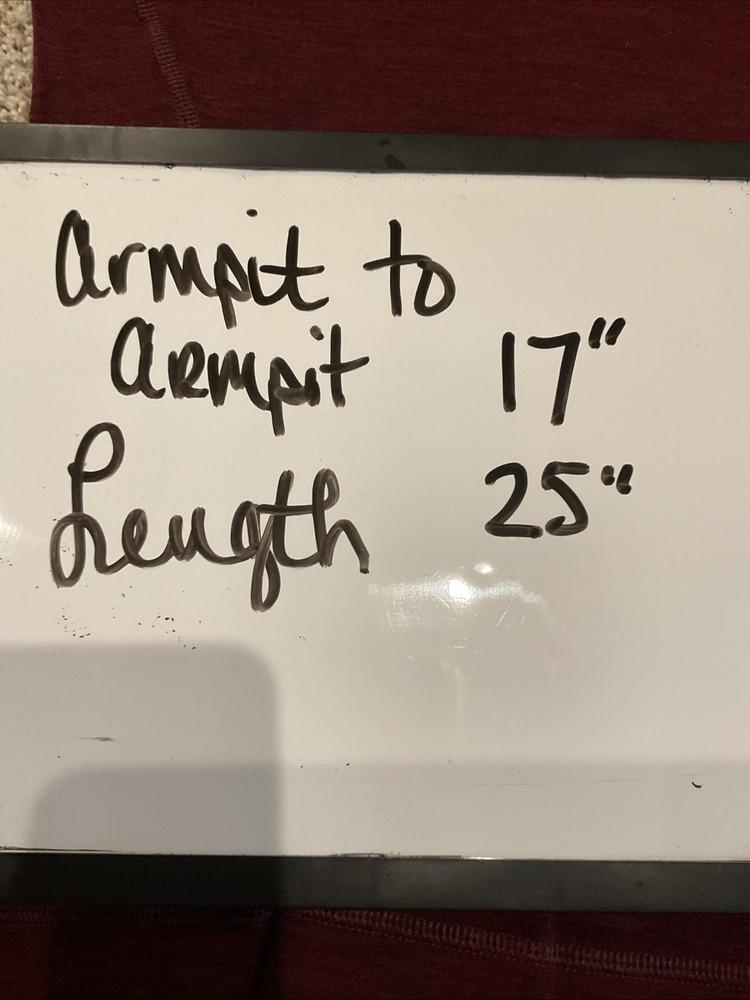 Armpit to
Armpit 17"
Length 25"